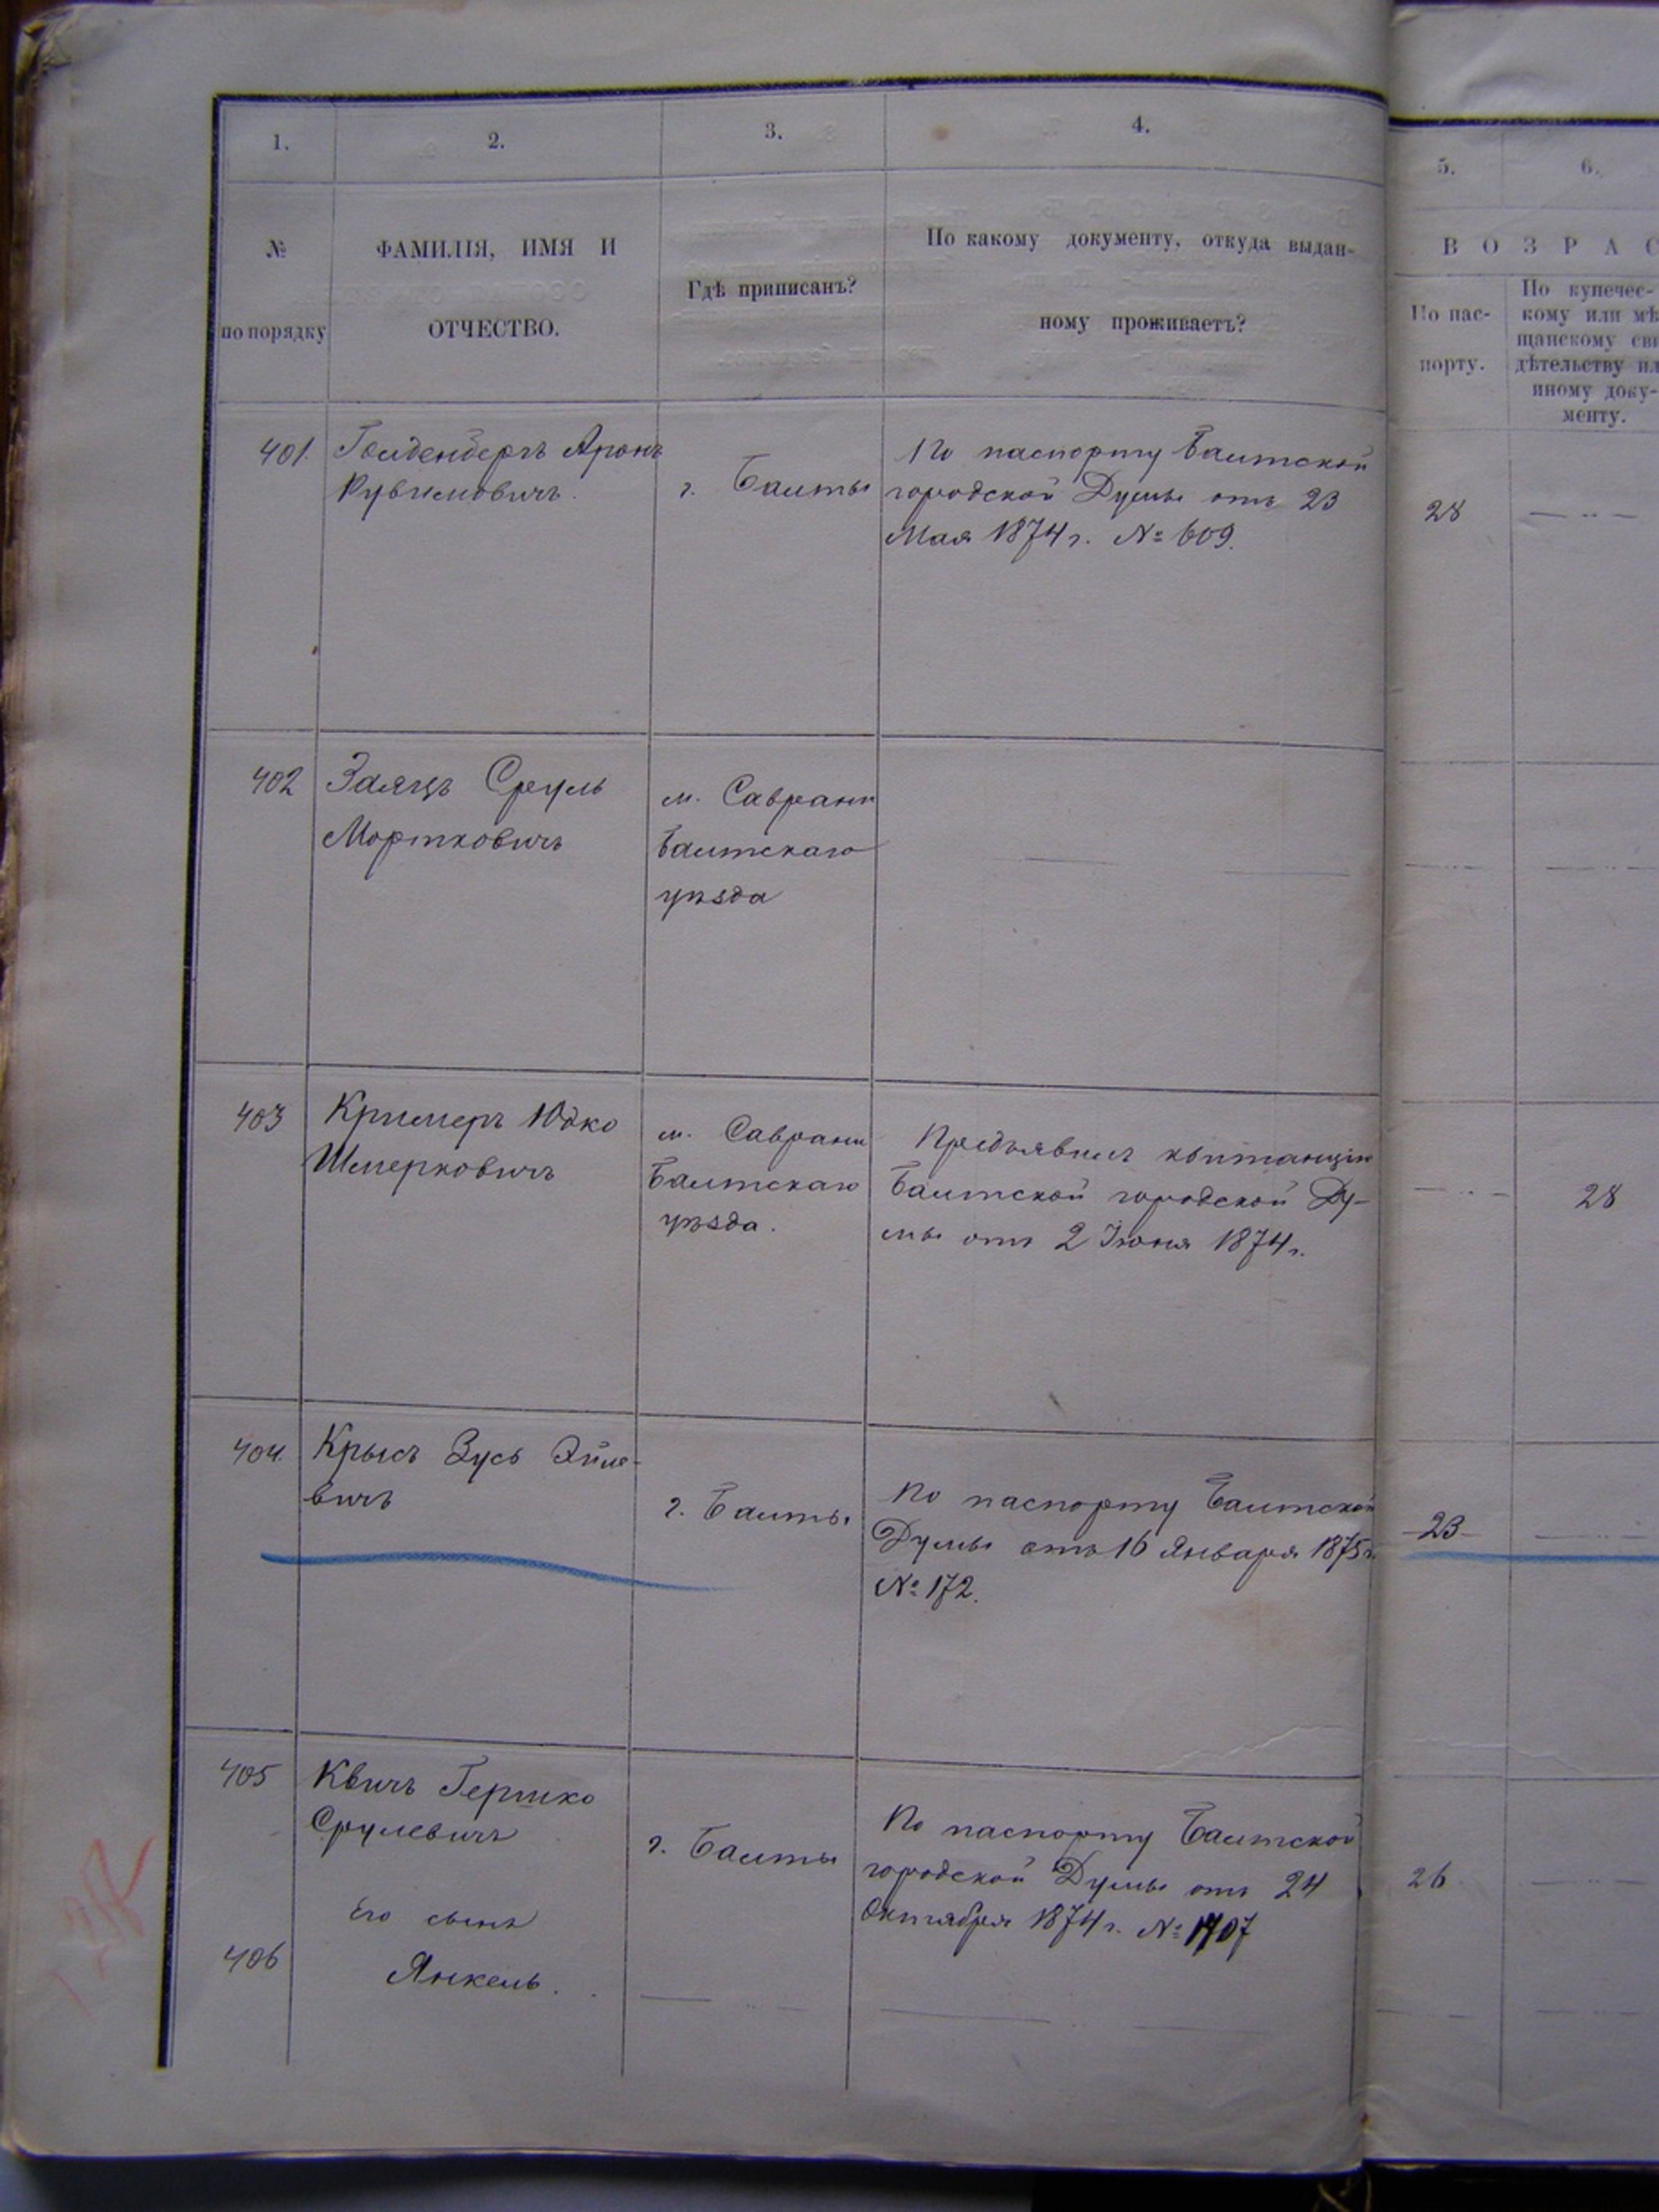 1.
2.
3.
4.
5.
6.
№
по порядку
ФАМИЛІЯ, ИМЯ И
ОТЧЕСТВО.
Гдѣ приписанъ?
По какому документу, откуда выдан-
ному проживаетъ?
В О З Р А С
По пас-
порту.
По купечес-
кому или мѣ
щанскому сви
дѣтельству ил
иному доку-
менту.
401.
Гольденбергъ Аронъ
Рувимовичъ.
г. Балты
По паспорту Балтской
городской Думы отъ 23
Мая 1874 г. № 609.
28
402
Заяцъ Сруль
Мортковичъ
м. Саврани
Балтскаго
уѣзда
403
Кримеръ Юдко
Шмерковичъ
м. Саврани
Балтскаго
уѣзда.
Предъявилъ квитанцію
Балтской городской Ду-
мы отъ 2 Іюня 1874 г.
28
404.
Крысъ Зусь
вичъ
г. Балты
По паспорту Балтской
Думы отъ 16 Января 1875 г.
№ 172.
23
405
Квичъ Гершко
Срулевичъ
г. Балты
По паспорту Балтской
городской Думы отъ 24
Октября 1874 г. № 1707
26
Его сынъ
406
Янкель.